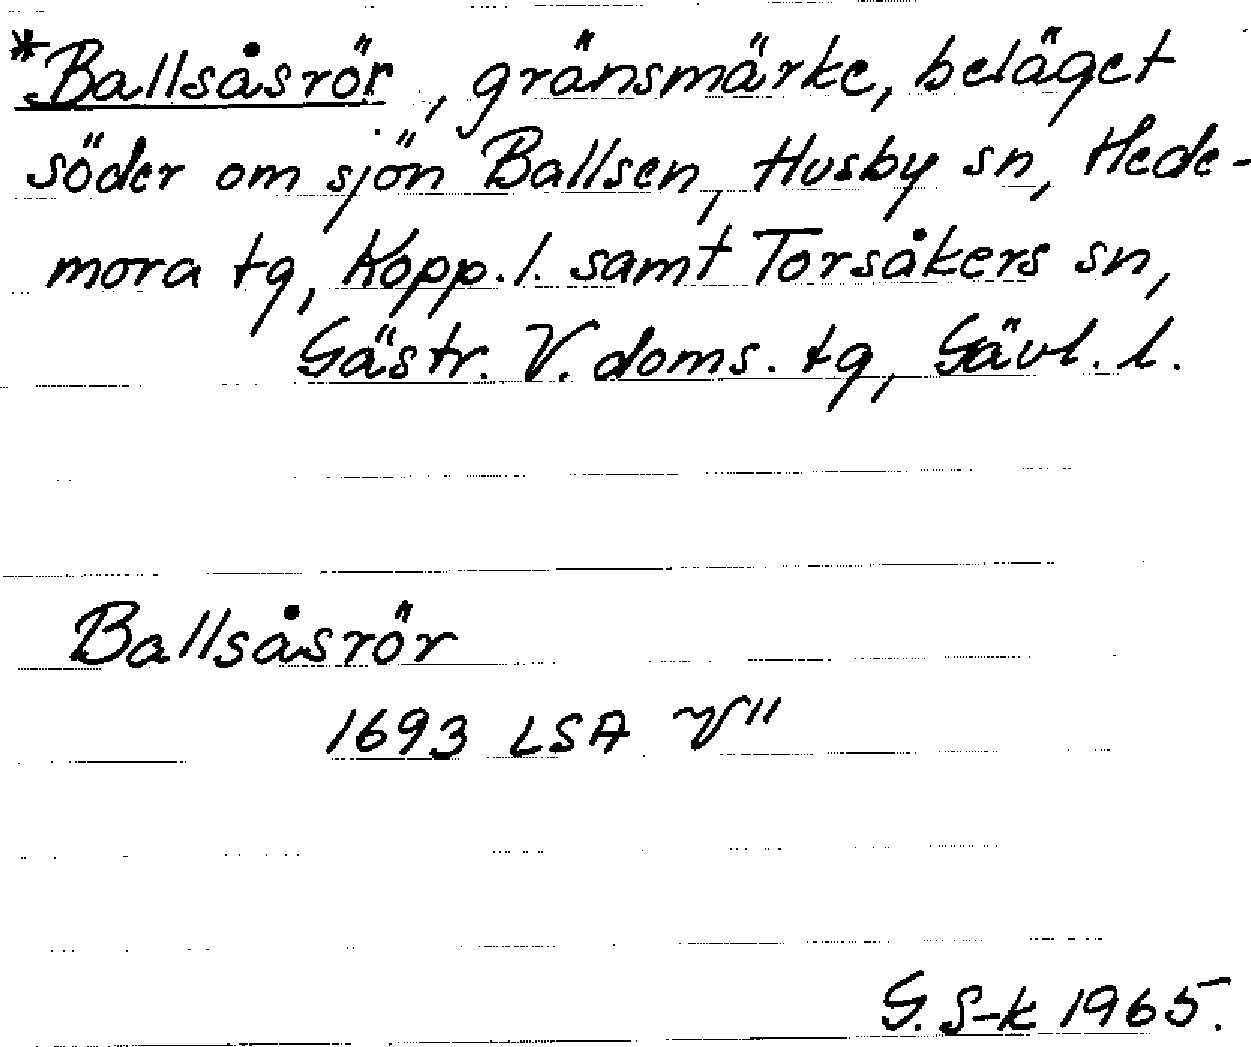 *Ballsåsrör, gränsmärke, beläget
söder om sjön Ballsen, Husby sn, Hede-
mora tg, Kopp. l. samt Torsåkers sn,
Gästr. V. doms. tg, Gävl. l.
Ballsåsrör
1693 LSA
G. S-k 1965.